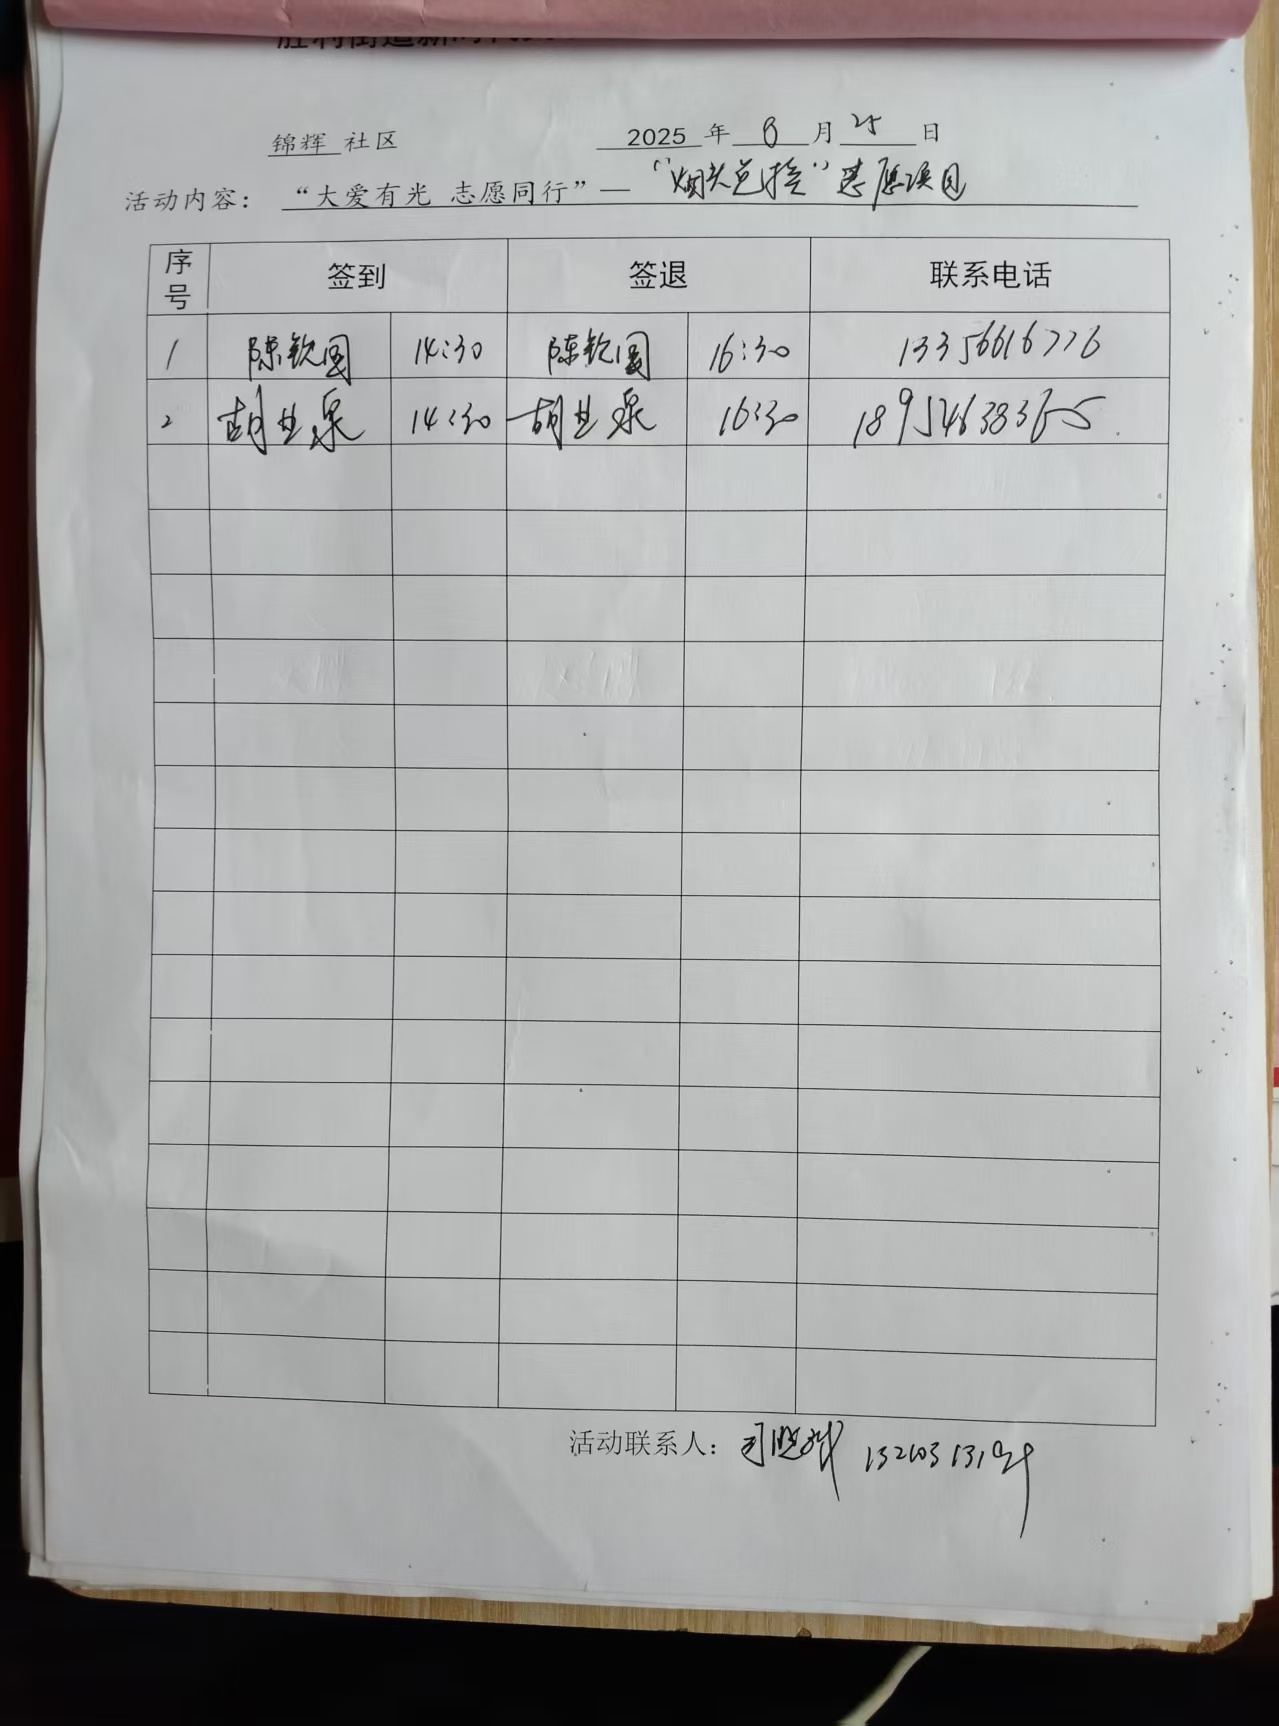 胜利街道新时代文
锦辉 社区 2025 年 8 月 25 日
活动内容： “大爱有光 志愿同行”— “烟头兑换”志愿项目
序号 签到 签退 联系电话
1 陈钦国 14:30 陈钦国 16:30 13356616776
2 胡世泉 14:30 胡世泉 16:30 18954638365
活动联系人：